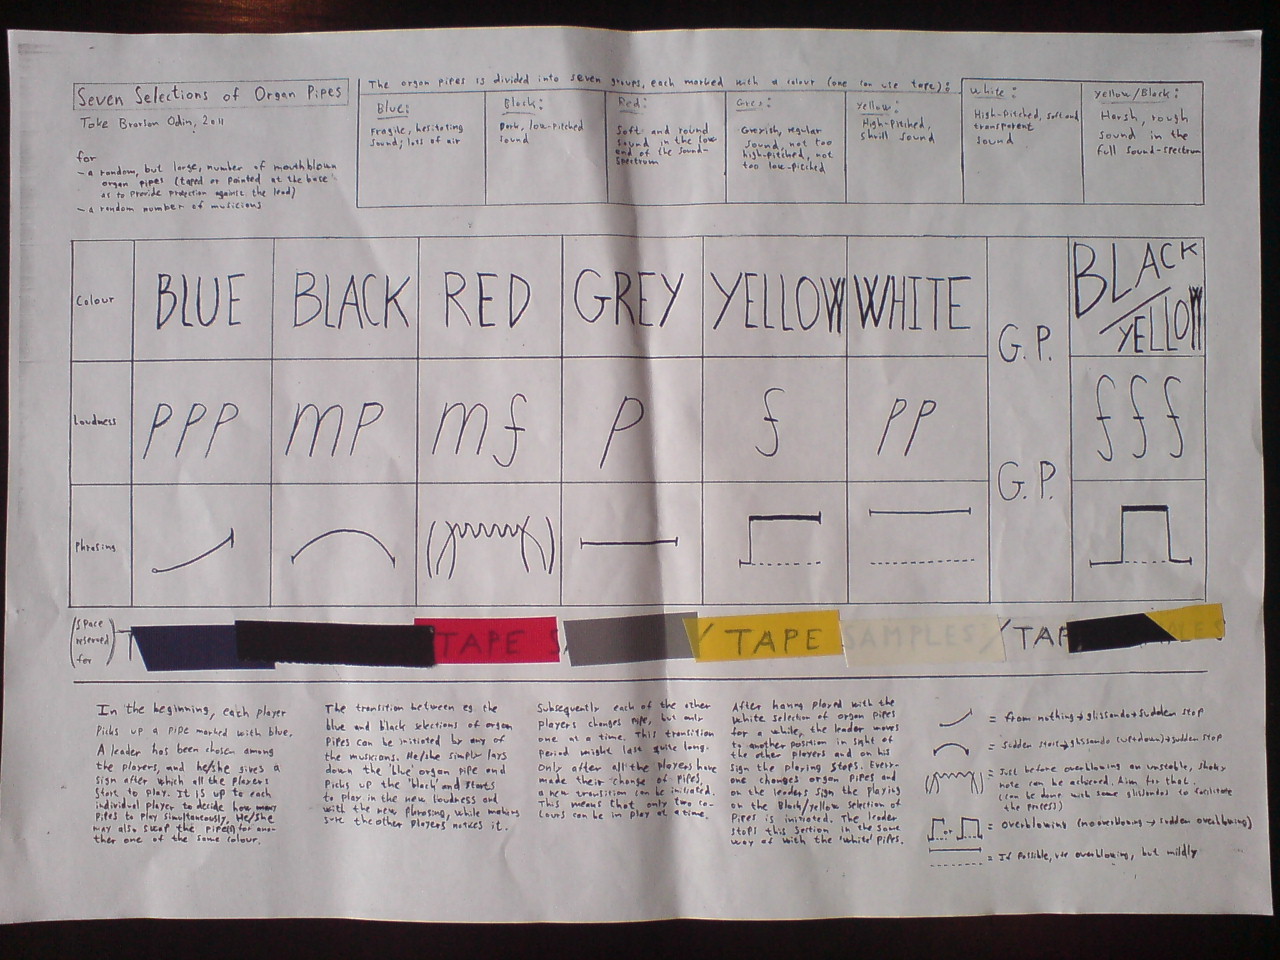 Seven Selections of Organ Pipes
Toke Brorson Odin, 2011
for
- a random, but large, number of mouthblown
organ pipes (taped or painted at the base
as to provide protection against the lead)
- a random number of musicians
The organ pipes is divided into seven groups, each marked with a colour (one can use tape):
Blue:
Fragile, hesitating
sound; lots of air
Black:
Dark, low-pitched
sound
Red:
Soft and round
sound in the low
end of the sound-
spectrum
Grey:
Greyish, regular
sound, not too
high-pitched, not
too low-pitched
Yellow:
High-pitched,
shrill sound
White:
High-pitched, soft and
transparent
sound
Yellow/Black:
Harsh, rough
sound in the
full sound-spectrum
Colour
BLUE
BLACK
RED
GREY
YELLOW
WHITE
G.P.
BLACK
/YELLOW
Loudness
ppp
mp
mf
p
f
pp
G.P.
fff
Phrasing
(Space
reserved
for)
TAPE
/ TAPE SAMPLES / TAP
PLES
In the beginning, each player
picks up a pipe marked with blue.
A leader has been chosen among
the players, and he/she gives a
sign after which all the players
start to play. It is up to each
individual player to decide how many
pipes to play simultaneously. He/she
may also swap the pipe(s) for ano-
ther one of the same colour.
The transition between eg. the
blue and black selections of organ
pipes can be initiated by any of
the musicians. He/she simply lays
down the 'blue' organ pipe and
picks up the 'black' and starts
to play in the new loudness and
with the new phrasing, while making
sure the other players notices it.
Subsequently each of the other
players changes pipe, but only
one at a time. This transition
period might last quite long.
Only after all the players have
made their change of pipes
a new transition can be initiated.
This means that only two co-
lours can be in play at a time.
After having played with the
white selection of organ pipes
for a while, the leader moves
to another position in sight of
the other players and on his
sign the playing stops. Every-
one changes organ pipes and
on the leaders sign the playing
on the Black/yellow selection of
pipes is initiated. The leader
stops this section in the same
way as with the 'white' pipes.
= from nothing → glissando → sudden stop
= sudden start → glissando (up + down) → sudden stop
= Just before overblowing an unstable, shaky
note can be achieved. Aim for that.
(can be done with some glissandos to facilitate
the process)
or
= overblowing (no overblowing → sudden overblowing)
= If possible, use overblowing, but mildly